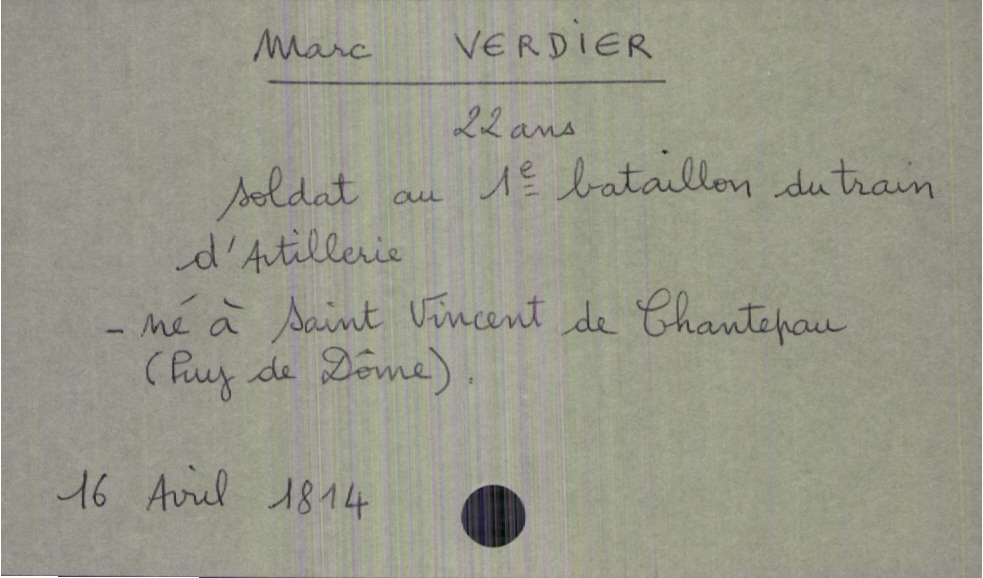 Marc VERDIER
22 ans
soldat au 1e bataillon du train
d'Artillerie
- né à Saint Vincent de Chantepau
(Puy de Dôme).
16 Avril 1814